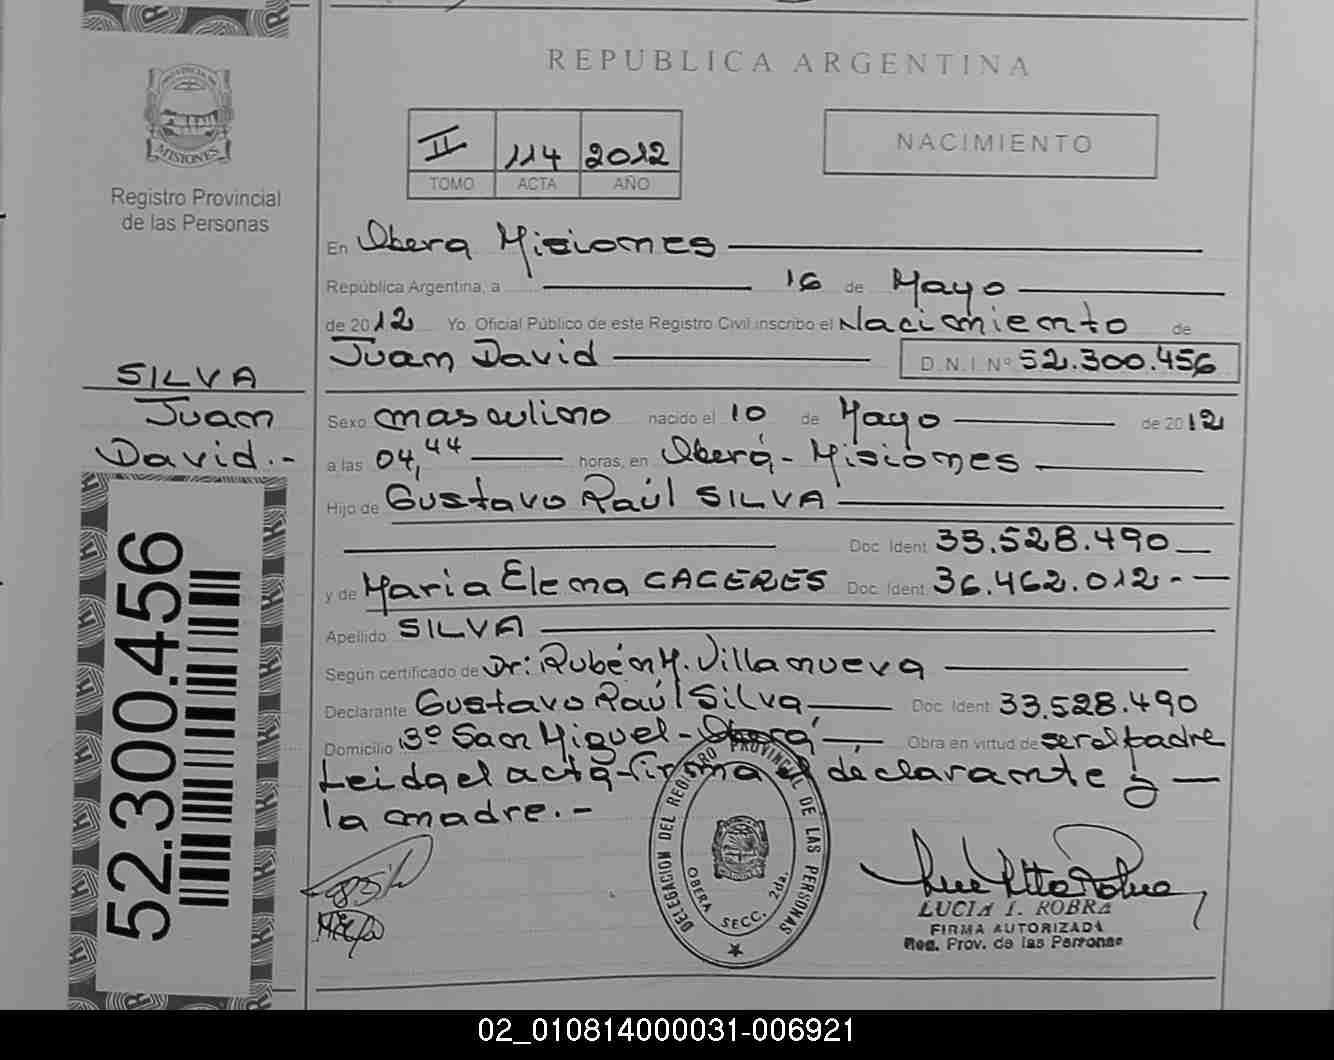 REPUBLICA ARGENTINA
MISIONES
Registro Provincial
de las Personas
II 114 2012
TOMO ACTA AÑO
NACIMIENTO
En Obera Misiones
República Argentina, a 16 de Mayo
de 2012 Yo, Oficial Público de este Registro Civil inscribo el Nacimiento de
Juan David D.N.I. Nº 52.300.456
SILVA
Juan
David.-
Sexo masculino nacido el 10 de Mayo de 2012
a las 04,44 horas, en Oberá - Misiones
Hijo de Gustavo Raúl SILVA
Doc. Ident. 33.528.490
y de Maria Elena CACERES Doc. Ident. 36.462.012.-
Apellido SILVA
Según certificado de Dr: Rubén M. Villanueva
Declarante Gustavo Raúl Silva Doc. Ident. 33.528.490
Domicilio Bº San Miguel - Oberá Obra en virtud de ser el padre
Leida el acta firma el declarante y
la madre.-
52.300.456
DELEGACION DEL REGISTRO PROVINCIAL DE LAS PERSONAS
OBERA SECC. 2da.
LUCIA I. ROBRA
FIRMA AUTORIZADA
Reg. Prov. de las Personas
02_010814000031-006921